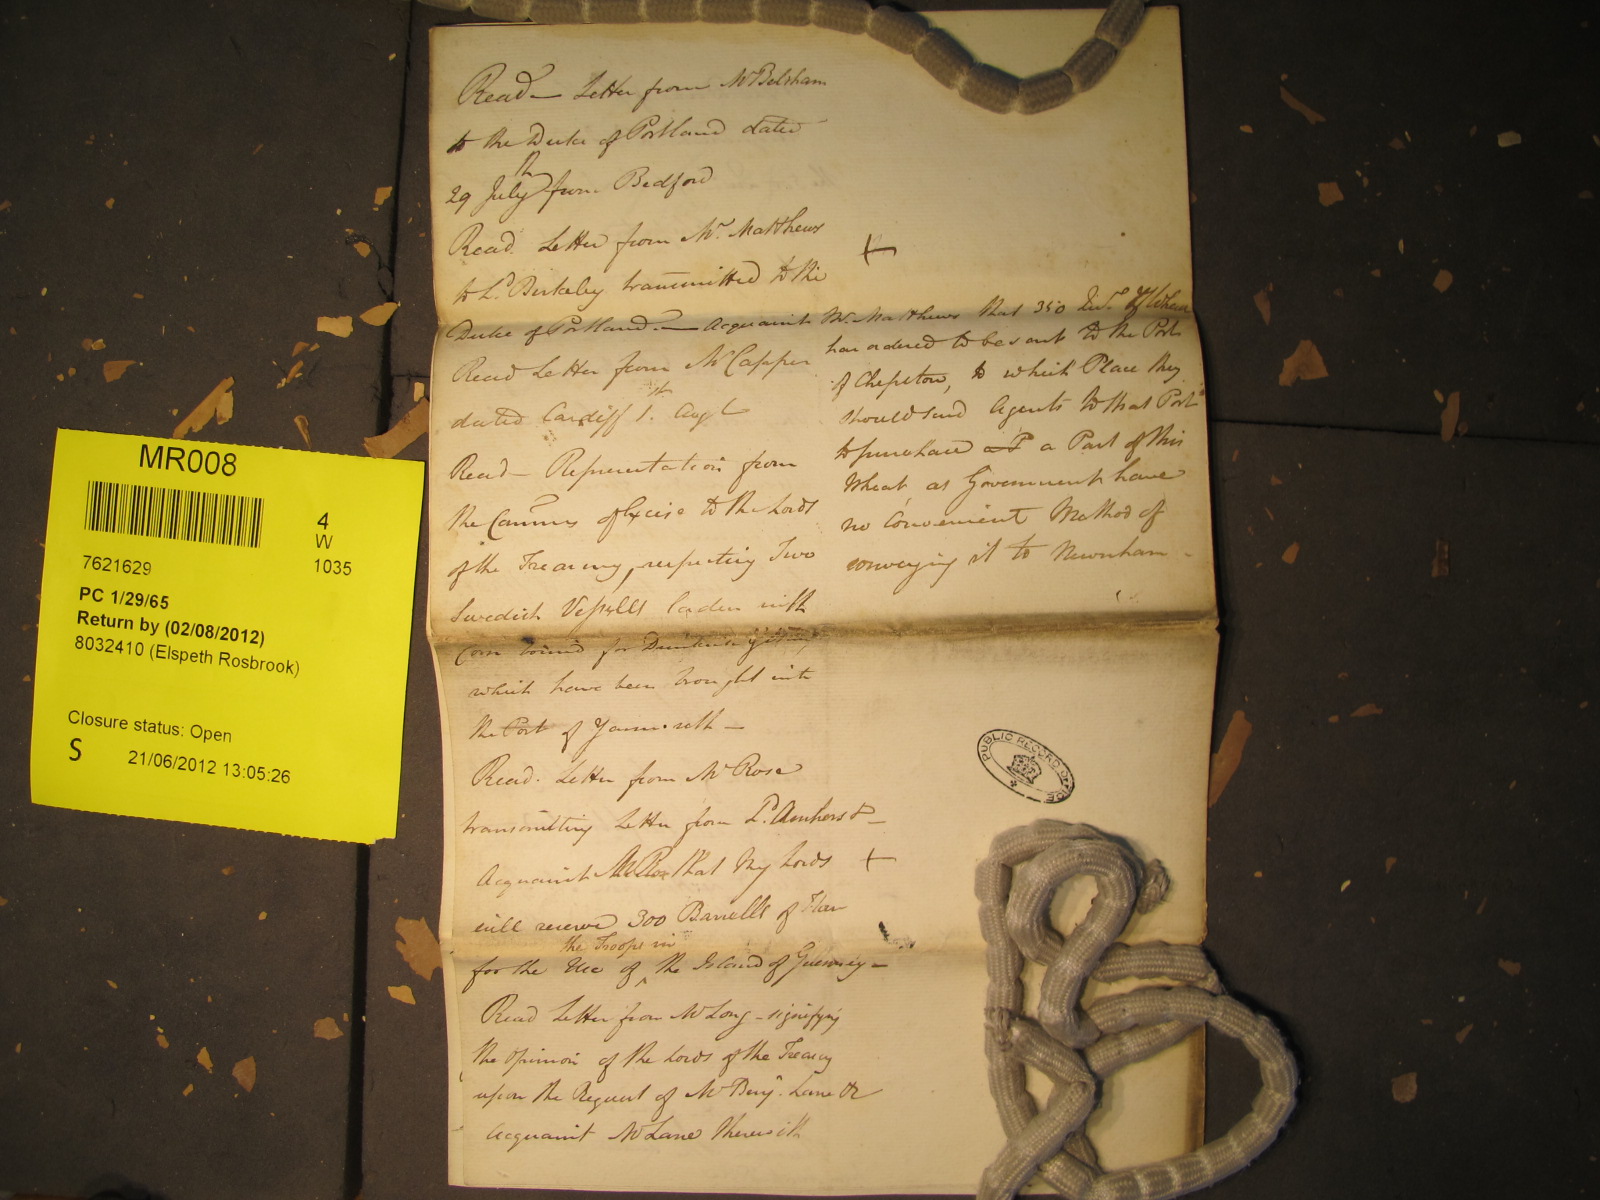 Read — Letter from Mr Belsham
to the Duke of Portland dated
29th July from Bedford
Read Letter from Mr. Matthews
to Ld. Berkeley transmitted to the
Duke of Portland. — Acquaint Mr. Matthews that 350 of Wheat
has ordered to be sent to the Port
of Chepstow, to which Place they
should send Agents to that Port
to purchase a Part of this
Wheat as Government have
no Convenient Method of
conveying it to Newnham -
+
Read Letter from Mr Capper
dated Cardiff 1st. Augt
Read — Representation from
the Commrs of Excise to the Lords
of the Treasury, respecting Two
Swedish Vessells laden with
Corn bound for
which have been brought into
the Port of Yarmouth —
Read. Letter from Mr Rose
transmitting Letter from Ld. Amherst —
Acquaint Mr Rose that My Lords
+
will reserve 300 Barrells of Flour
for the Use of the Troops in the Island of Guernsey —
Read Letter from Mr Long - signifying
the Opinion of the Lords of the Treasury
upon the Request of Mr Benj. Lane &
Acquaint Mr Lane therewith
PUBLIC RECORD OFFICE
MR008
4
W
1035
7621629
PC 1/29/65
Return by (02/08/2012)
8032410 (Elspeth Rosbrook)
Closure status: Open
S 21/06/2012 13:05:26